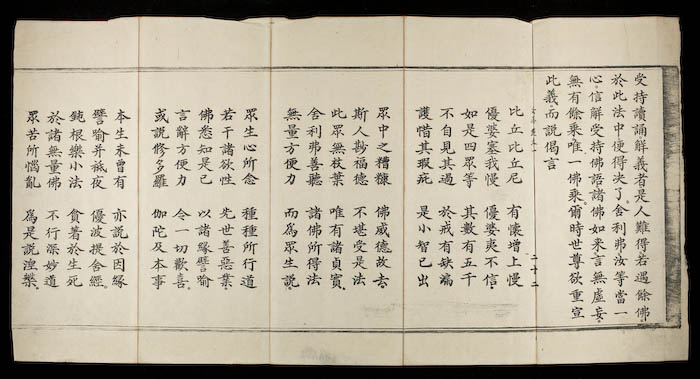 受持讀誦解義者是人難得若遇餘佛。
於此法中便得決了。舍利弗汝等當一
心信解受持佛語諸佛如來言無虛妄。
無有餘乘唯一佛乘。爾時世尊欲重宣
此義而說偈言
二十二
比丘比丘尼　有懷增上慢
優婆塞我慢　優婆夷不信。
如是四眾等　其數有五千
不自見其過　於戒有缺漏
護惜其瑕疵　是小智已出
眾中之糟糠　佛威德故去
斯人尠福德　不堪受是法
此眾無枝葉　唯有諸貞實。
舍利弗善聽　諸佛所得法
無量方便力　而為眾生說。
眾生心所念　種種所行道
若干諸欲性　先世善惡業。
佛悉知是已　以諸緣譬喻
言辭方便力　令一切歡喜。
或說修多羅　伽陀及本事
本生未曾有　亦說於因緣
譬喻并祇夜　優波提舍經。
鈍根樂小法　貪著於生死
於諸無量佛　不行深妙道
眾苦所惱亂　為是說涅槃。